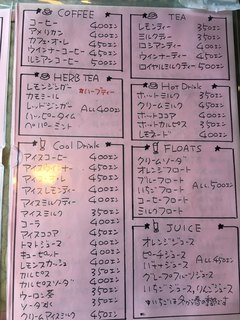 COFFEE
コーヒー 400エン
アメリカン 400エン
カフェ・オ・レ 450エン
ウインナーコーヒー 450エン
ルシアンコーヒー 500エン
HERB TEA
レモンジンガー
カモミール
レッドジンガー
ハッピータイム
ペパーミント
*ハーブティー
ALL 400エン
Cool Drink
アイスコーヒー 400エン
400エン
アイスティー
アイスレモンティー 400エン
アイスミルクティー 400エン
アイスミルク 350エン
コーラ 400エン
アイスココア 450エン
トマトジュース 400エン
レモンスカッシュ
カルピス 350エン
カルピスソーダ 350エン
ウーロン茶 350エン
クリームアイスミルク 450エン
TEA
レモンティー 350エン
ミルクティー 350エン
ロシアンティー 400エン
ウインナーティー 400エン
ロイヤルミルクティー 500エン
Hot Drink
ホットミルク 350エン
クリームミルク 450エン
ホットココア 400エン
ホットカルピス 350エン
レモネード 400エン
FLOATS
クリームソーダ
オレンジフロート
ブルーフロート
いちごフロート
コーヒーフロート
ミルクフロート
ALL 500エン
JUICE
オレンジジュース
ピーチジュース
バナナジュース
グレープフルーツジュース
いちごジュース、りんごジュース